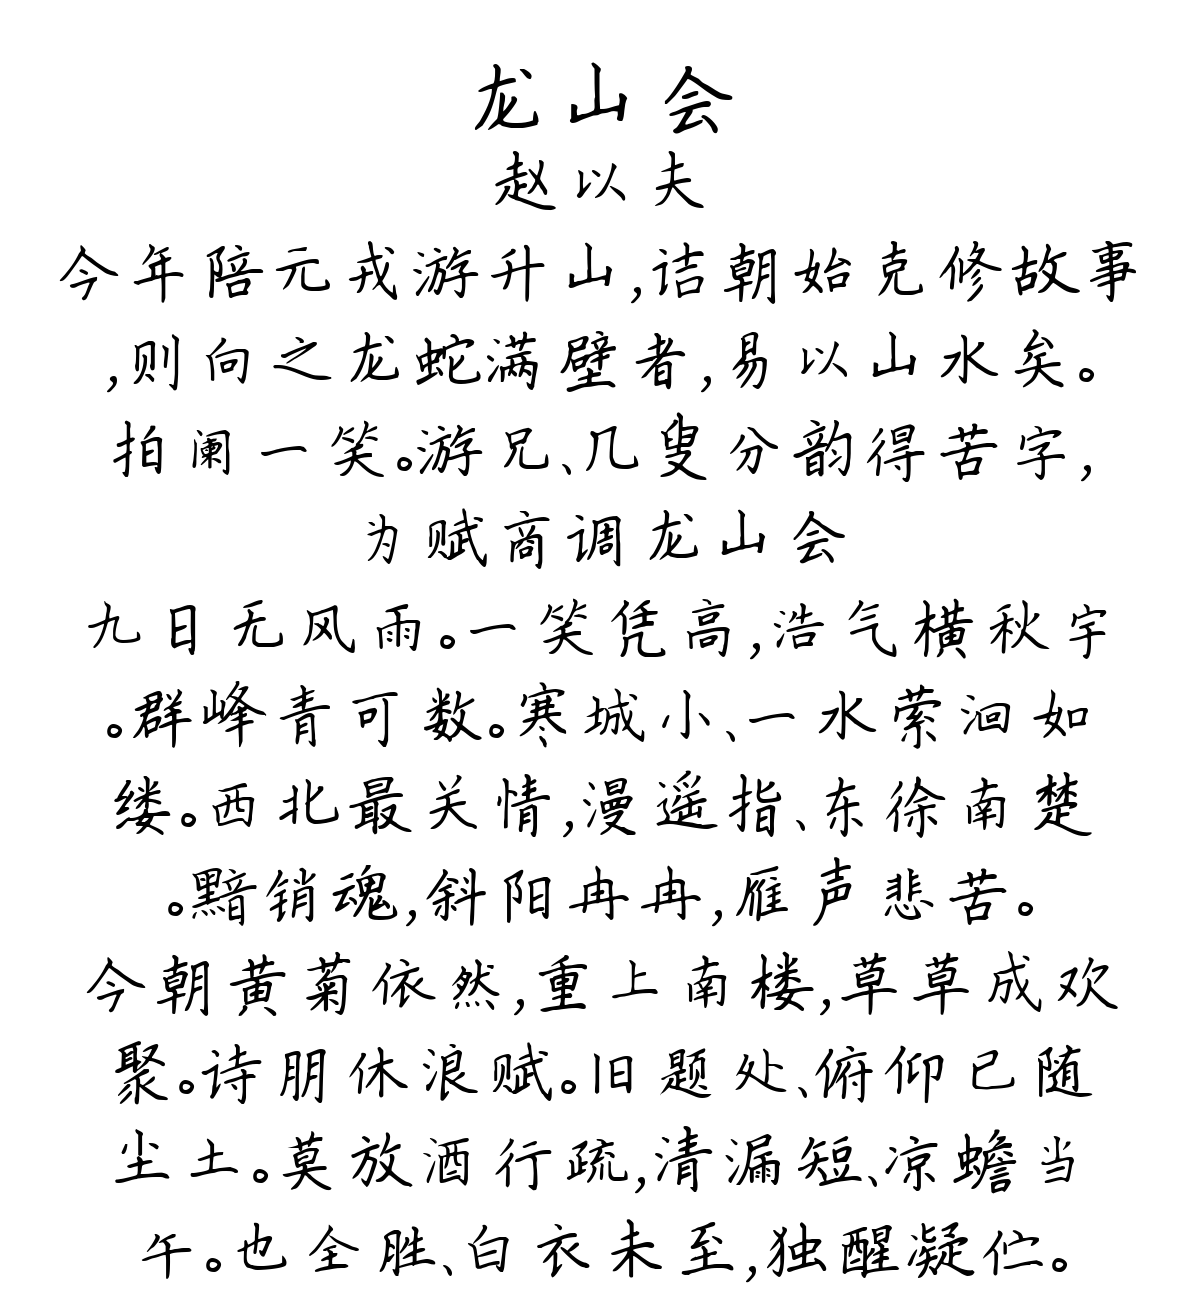 龙山会
赵以夫
今年陪元戎游升山,诘朝始克修故事
,则向之龙蛇满壁者,易以山水矣。
拍阑一笑。游兄、几叟分韵得苦字,
为赋商调龙山会
九日无风雨。一笑凭高,浩气横秋宇
。群峰青可数。寒城小、一水萦洄如
缕。西北最关情,漫遥指、东徐南楚
。黯销魂,斜阳冉冉,雁声悲苦。
今朝黄菊依然,重上南楼,草草成欢
聚。诗朋休浪赋。旧题处、俯仰已随
尘土。莫放酒行疏,清漏短、凉蟾当
午。也全胜、白衣未至,独醒凝伫。